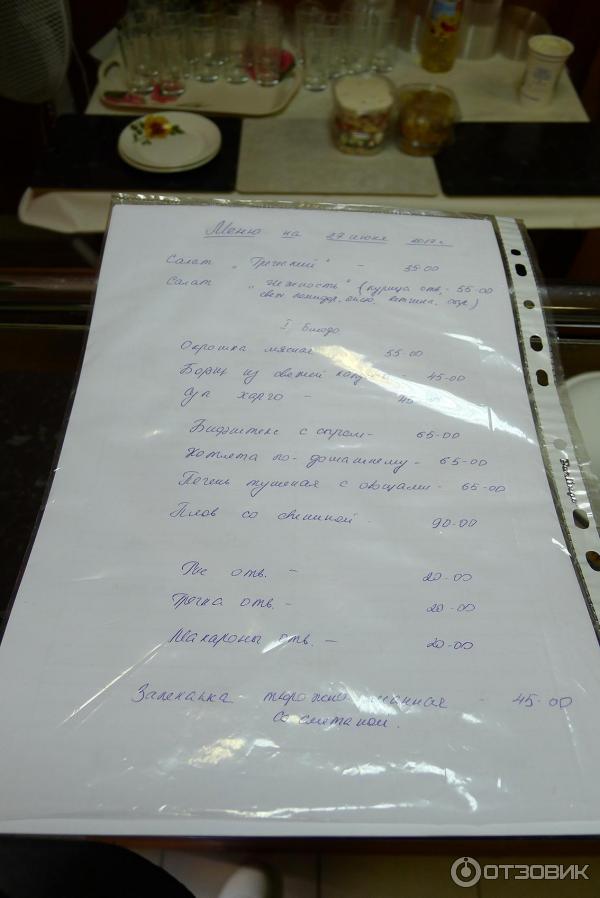 Меню на 27 июня 2017г.
Салат "Греческий" - 35-00
Салат "Нежность" (курица отв. - 55-00
свеж помидор, яйцо, ветчина, сыр)
I Блюдо
Окрошка мясная 55-00
Борщ из свежей - 45-00
Суп харчо -
Бифштекс с сыром - 65-00
Котлета по-домашнему - 65-00
Печень тушеная с овощами - 65-00
Плов со свининой - 90-00
Рис отв. - 20-00
Гречка отв. - 20-00
Макароны отв. - 20-00
Запеканка манная - 45-00
со сметаной.
ОТЗОВИК